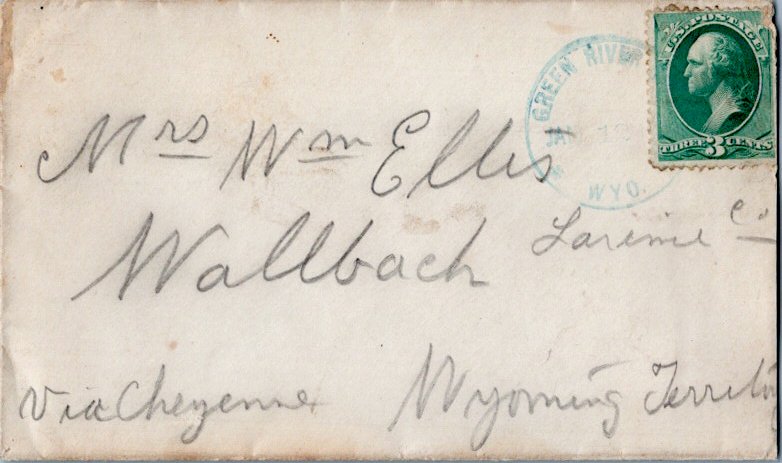 U.S. POSTAGE
THREE 3 CENTS
GREEN RIVER
JAN
WYO.
Mrs Wm Ellis
Wallbach Larimie Co
Via Cheyenne Wyoming Territo